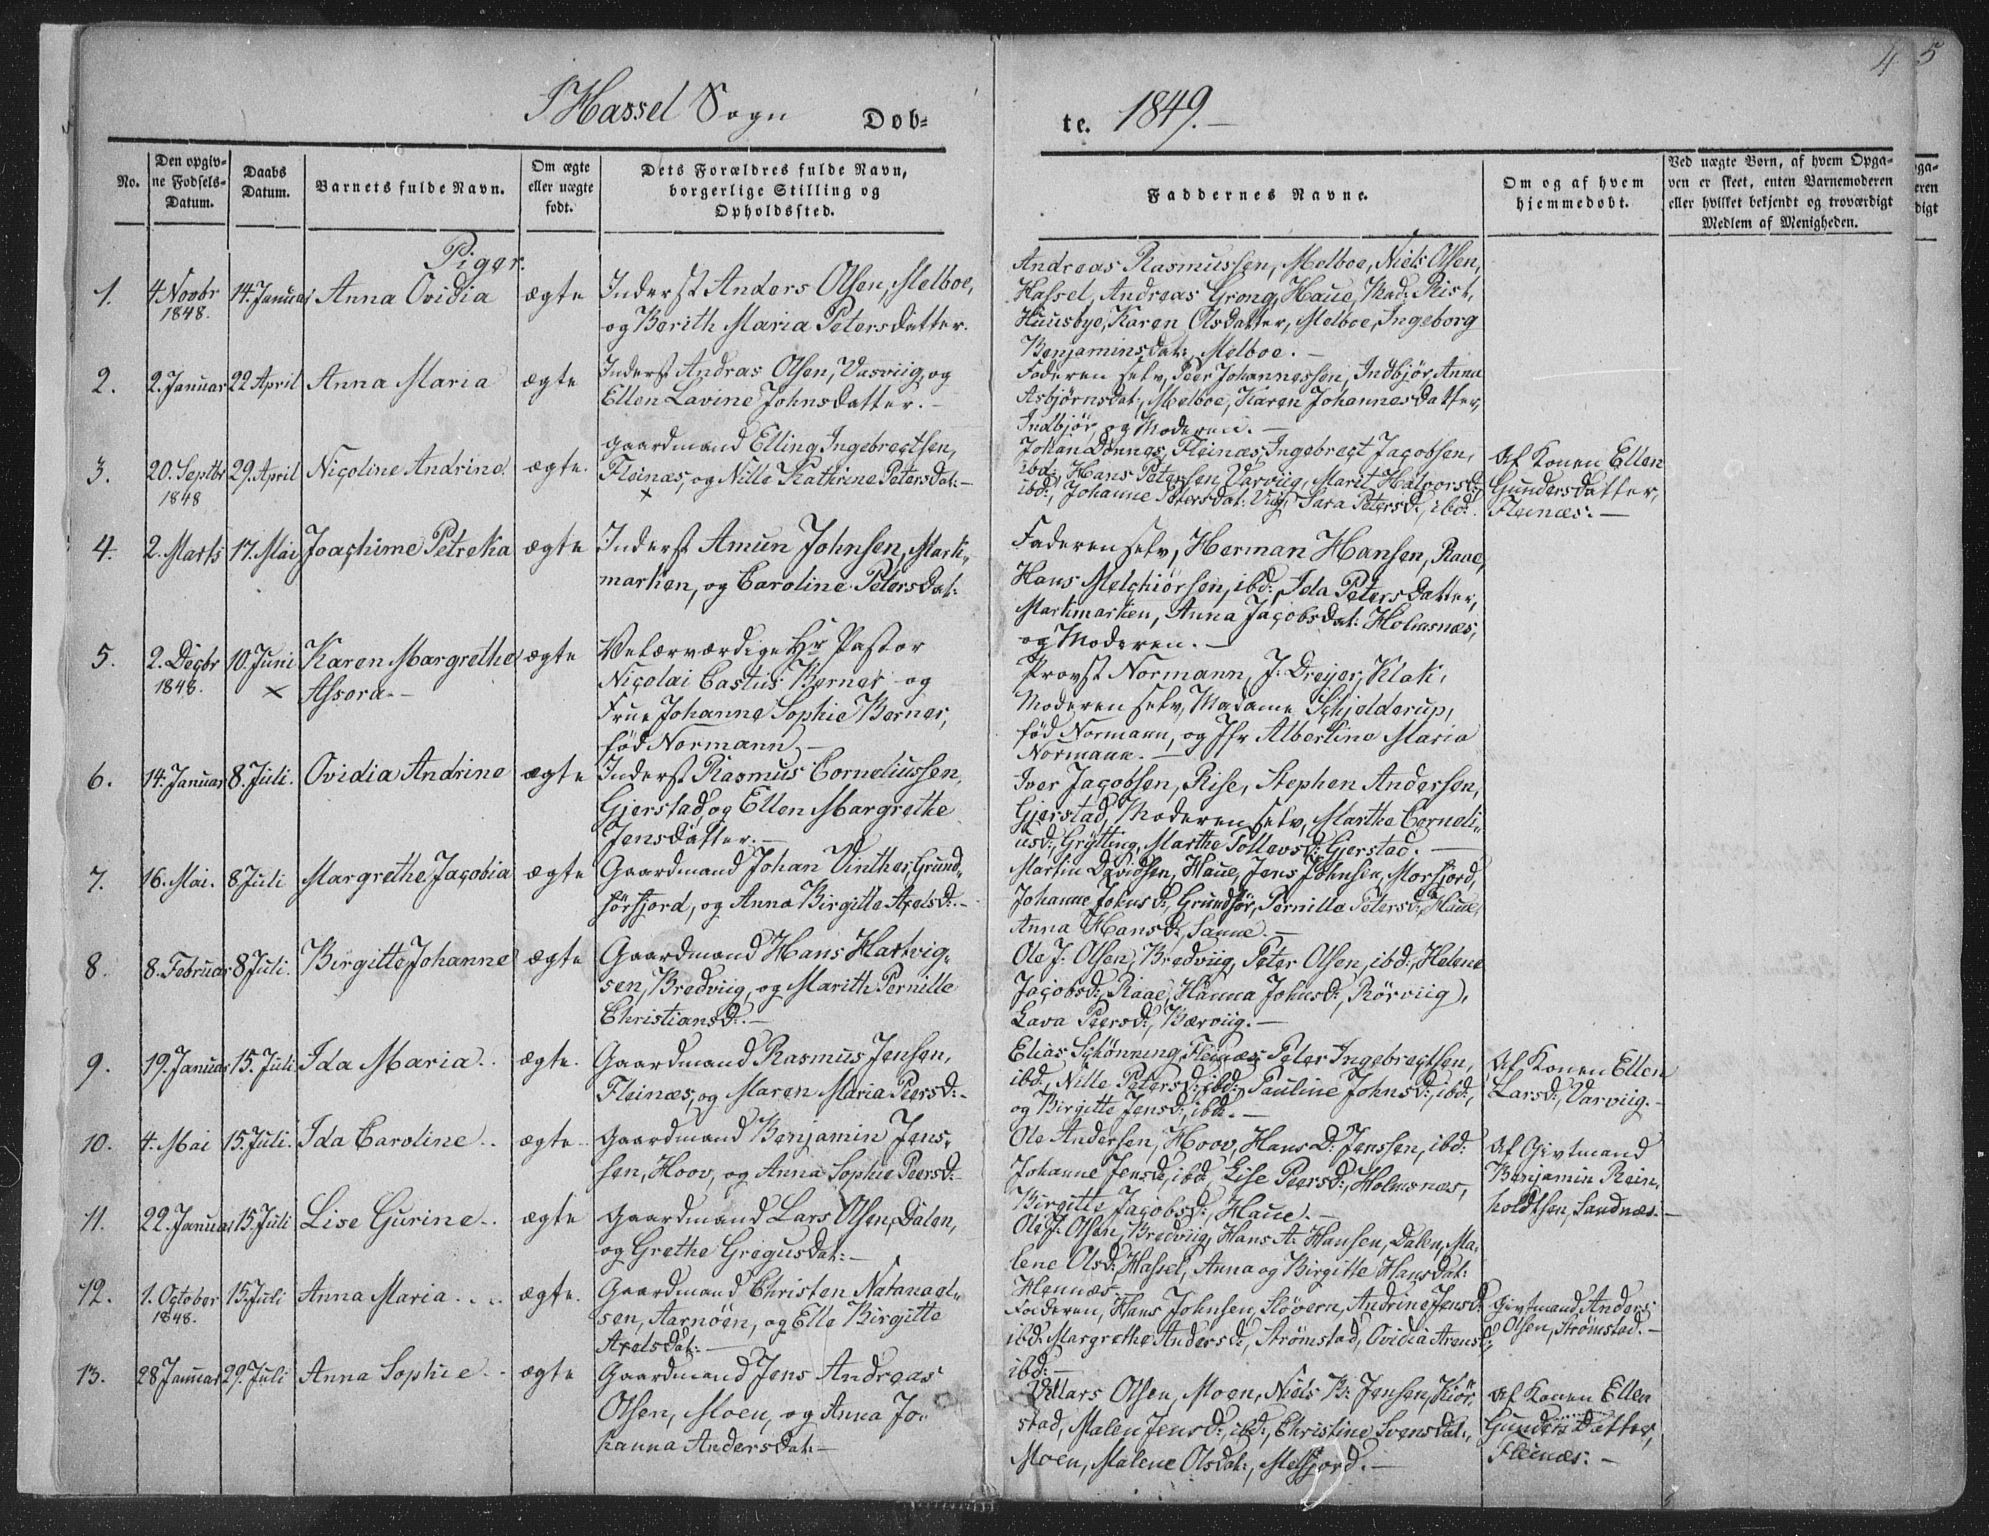 4 5
I Hassel Sogn Døb-
te. 1849.-
No.
Den opgiv-
ne Fødsels-
Datum.
Daabs
Datum.
Barnets fulde Navn.
Om ægte
eller uægte
født.
Dets Forældres fulde Navn,
borgerlige Stilling og
Opholdssted.
Faddernes Navne.
Om og af hvem
hjemmedøbt.
Ved uægte Børn, af hvem Opga-
ven er skeet, enten Barnemoderen
eller hvilket bekjendt og troværdigt
Medlem af Menigheden.
Piger.
1. 4 Novbr 1848. 14. Januar Anna Ovidia ægte
Inderst Anders Olsen, Melboe,
og Berith Maria Petersdatter.
Andreas Rasmussen, Melboe, Niels Olsen,
Hassel, Andreas Grong, Haue, Mad: Rist,
Huusbye, Karen Olsdatter, Melboe, Ingeborg
Benjaminsdat:, Melboe. -
2. 2. Januar 22 April Anna Maria ægte
Inderst Andras Olsen, Vasviig, og
Ellen Lavine Johnsdatter. -
Faderen selv, Peer Johannessen, Indbjør, Anna
Asbjørnsdat:, Melboe, Karen Johannesdatter,
Indbjør, og Moderen. -
3. 20. Septbr 1848 29. April Nicoline Andrine ægte.
Gaardmand Elling Ingebrectsen,
Fleinæs, og Nille Kathrine Petersdat: -
Johan Dönnes, Fleinæs, Ingebrect Jacobsen,
ibd:, Hans Petersen, Varviig, Marit Halvorsd:
ibd:, Johanne Petersdat: Vig, Sara Petersd:, ibd:
Af Konen Ellen
Gundersdatter,
Fleinæs. -
4. 2. Marts 17. Mai Joachime Petreka ægte
Inderst Amun Johnsen, Mark-
marken, og Caroline Petersdat:
Faderen selv, Herman Hansen, Raae,
Hans Melchiørsen, ibd:, Ida Petersdatter,
Markmarken, Anna Jacobsdat: Holmsnæs,
og Moderen. -
5. 2. Decbr 1848. 10. Juni × Karen Margrethe
Assora. - ægte
Velærværdige Hr Pastor
Nicolai Castus Berner og
Frue Johanne Sophie Berner,
född Normann, -
Provst Normann, J: Dreyer, Klak,
Moderen selv, Madame Schjelderup,
föd Normann, og Jfr Albertine Maria
Normann. -
6. 14. Januar 8. Juli. Ovidia Andrine ægte
Inderst Rasmus Corneliussen,
Gjerstad, og Ellen Margrethe
Jensdatter. -
Iver Jacobsen, Rise, Stephen Anderssen,
Gjerstad, Moderen selv, Marthe Corneli-
usd:, Grytting, Marthe Tollevsd:, Gjerstad. -
7. 16. Mai. 8 Juli Margrethe Jacobia ægte
Gaardmand Johan Vinther, Grund-
förfjord, og Anna Birgitte Axelsd: -
Martin Davidsen, Haue, Jens Johnsen, Morfjord,
Johanne Johnsd:, Grundför, Pernille Petersd:, Haue,
Anna Hansd:, Sanne. -
8. 8. Februar 8 Juli. Birgitte Johanne ægte
Gaardmand Hans Hartvig-
sen, Bredviig, og Marith Pernille
Christiansd: -
Ole J: Olsen, Bredviig, Peter Olsen, ibd:, Helene
Jacobsd:, Raae, Hanna Johnsd:, Rörviig,
Lava Peersd:, Bærviig. -
9. 19. Januar 15. Juli Ida Maria. ægte.
Gaardmand Rasmus Jensen,
Fleinæs, og Maren Maria Peersd: -
Elias Schönning, Fleinæs, Peter Ingebrectsen,
ibd:, Nille Petersd:, ibd:, Pauline Johnsd:, ibd:,
og Birgitte Jensd:, ibd:. -
Af Konen Ellen
Larsd:, Varviig. -
10. 4. Mai 15. Juli. Ida Caroline. ægte
Gaardmand Benjamin Jens-
sen, Hoov, og Anna Sophie Peersd: -
Ole Andersen, Hoov, Hans D: Jenssen, ibd:
Johanne Jensd:, ibd, Lise Peersd:, Holmsnæs,
Birgitte Jacobsd:, Haue. -
Af Givtmand
Benjamin Rein-
holdtsen, Sandnæs. -
11. 22. Januar 15. Juli Lise Gurine. ægte
Gaardmand Lars Olsen, Dalen,
og Grethe Gregusdat: -
Ole J: Olsen, Bredviig, Hans A: Hansen, Dalen, Ma-
lene Olsd:, Hassel, Anna og Birgitte Hansdat:
Hennæs. -
12. 1. October 1848. 15. Juli Anna Maria. ægte.
Gaardmand Christen Natanael-
sen, Aarnöen, og Elle Birgitte
Axelsdat: -
Faderen, Hans Johnsen, Slövern, Andrine Jensd:
ibd: Margrethe Andersd:, Strömstad, Ovidia Arensd:,
ibd: -
Givtmand Anders
Olsen, Strömstad. -
13. 28 Januar 29. Juli Anna Sophie. ægte
Gaardmand Jens Andreas
Olsen, Moen, og Anna Jo-
hanna Andersdat: -
Lars Olsen, Moen, Niels B: Jensen, Kiör-
stad, Malen Jensd:, ibd:, Christine Svensdat:,
Moen, Malene Olsdat:, Melfjord. -
Af Konen Ellen
Gundersdatter,
Fleinæs. -